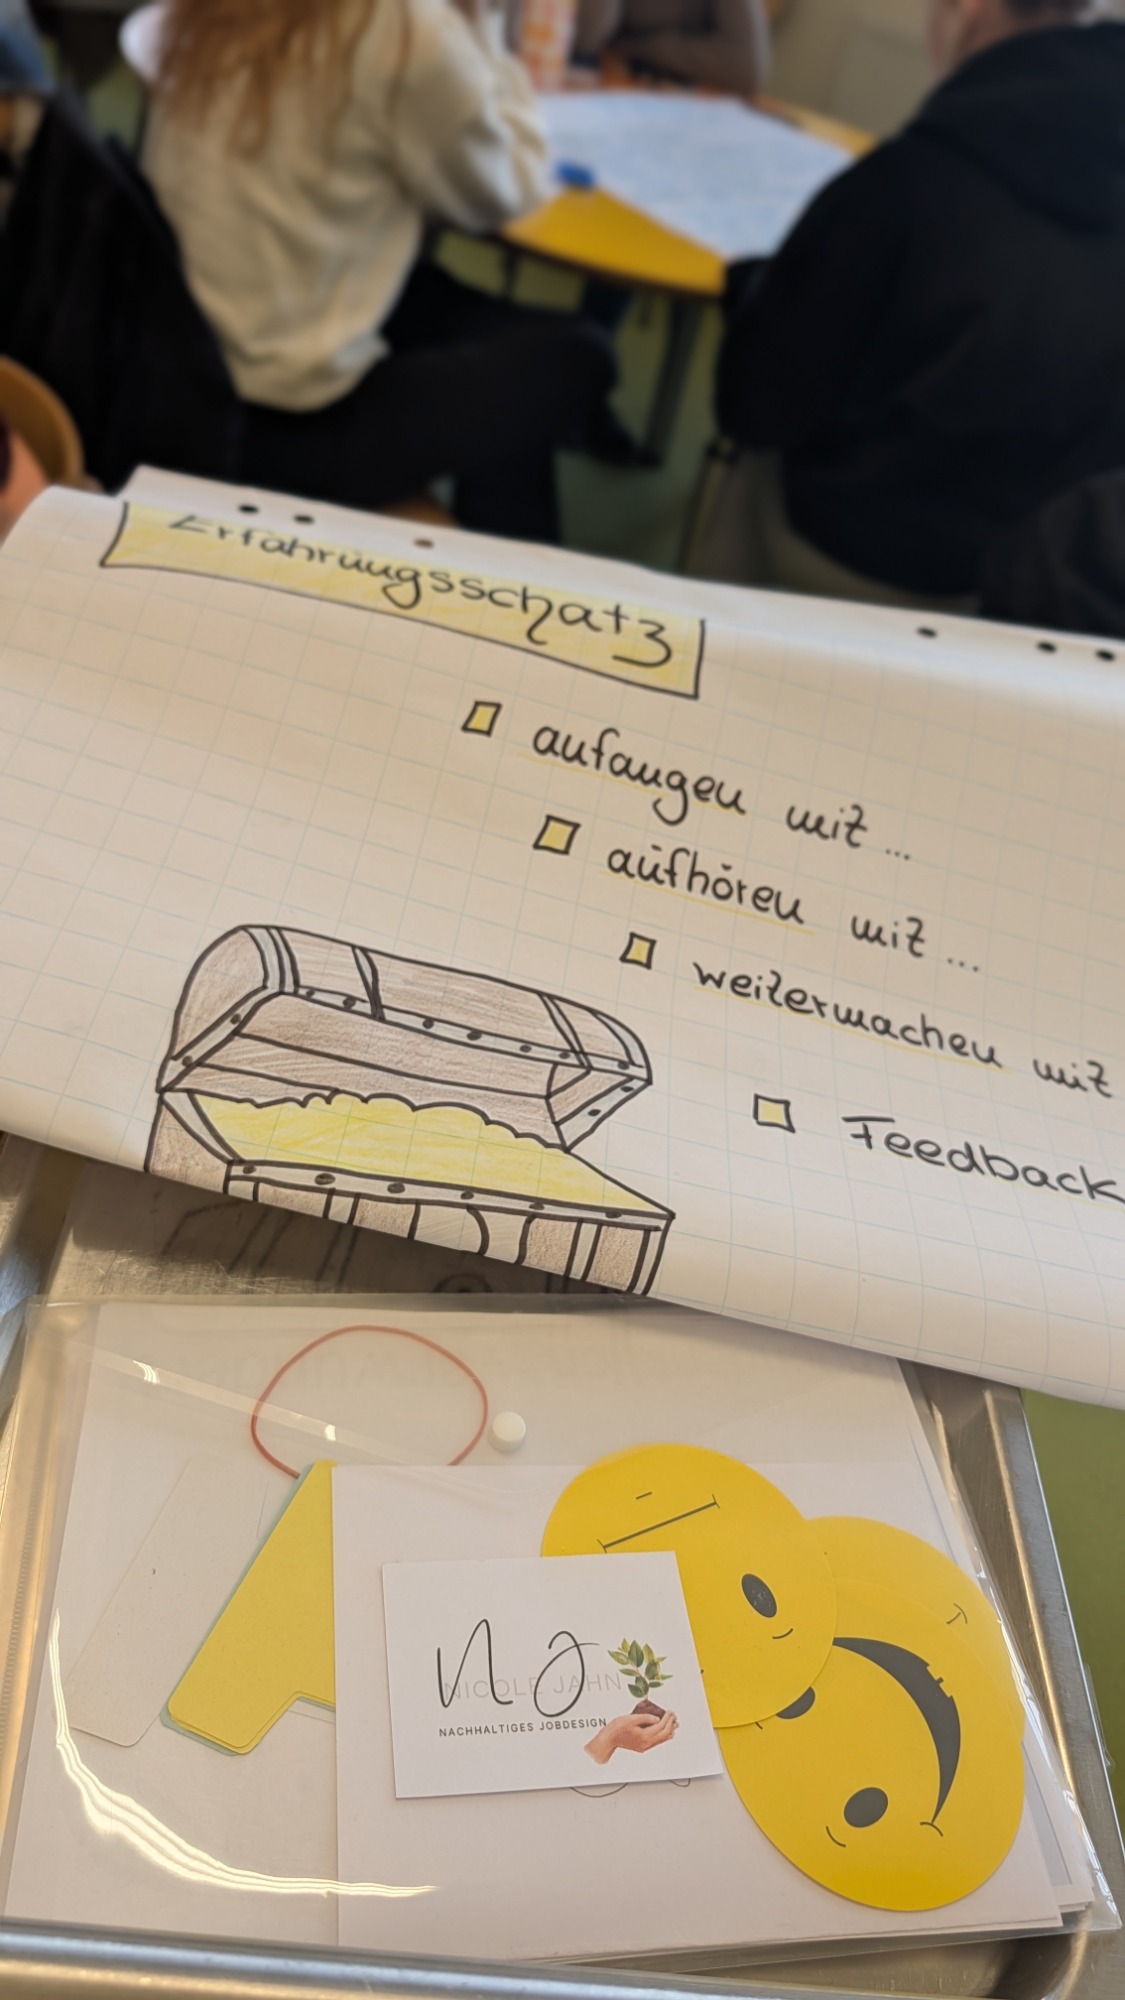 Erfahrungsschatz
anfangen mit...
aufhören mit...
weitermachen mit
Feedback
NJ
NICOLE JAHN
NACHHALTIGES JOBDESIGN